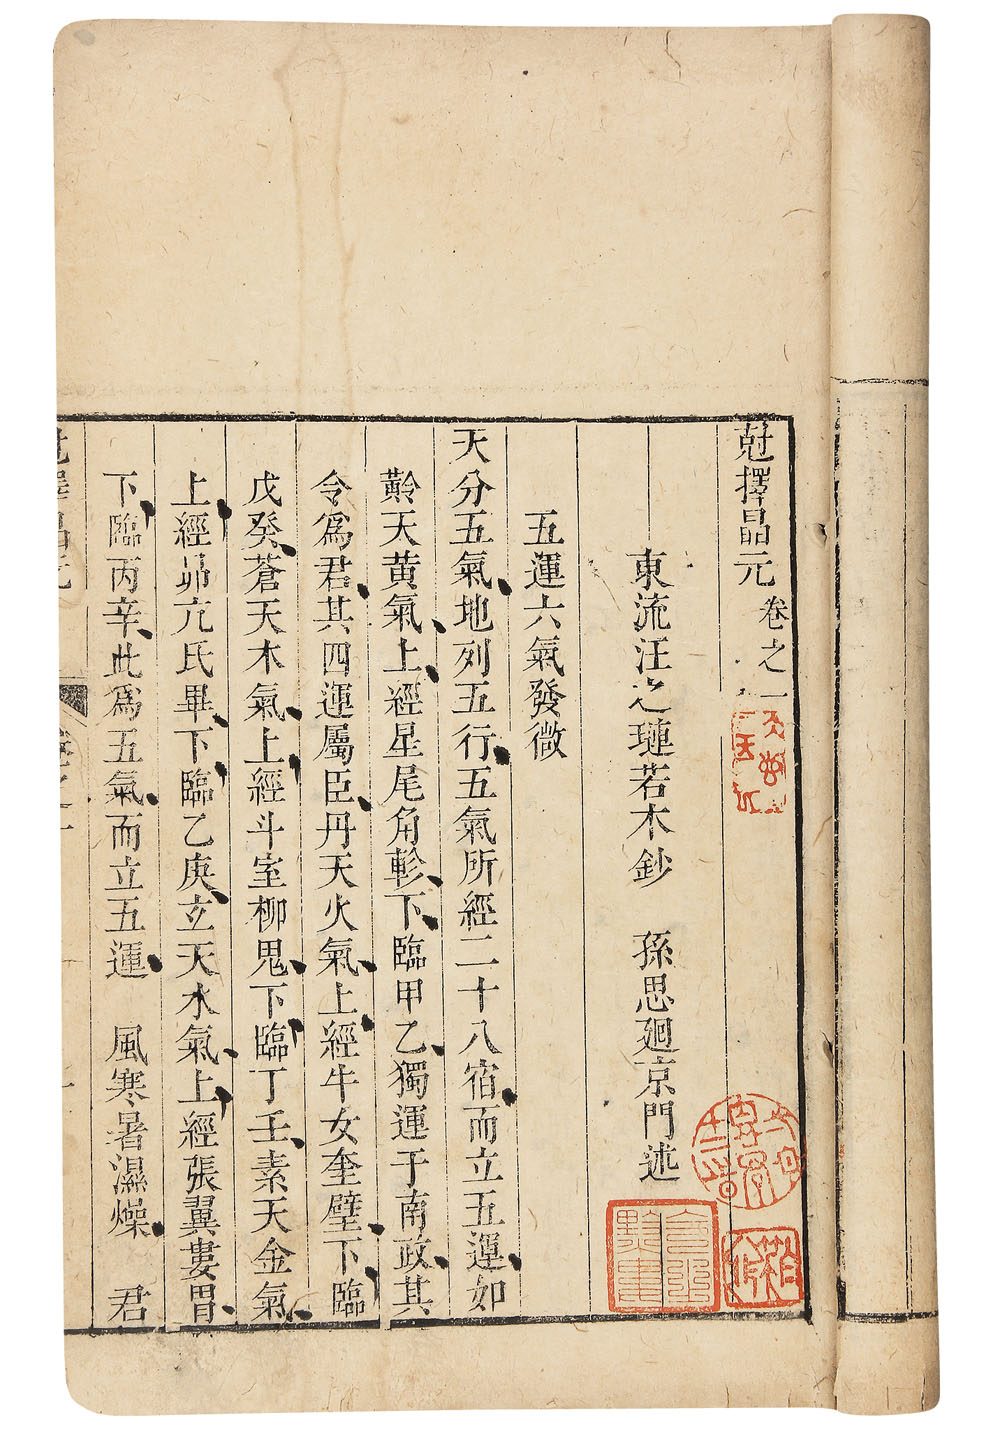 尅擇晶元 卷之一
東流汪之璉若木鈔 孫思廻京門述
五運六氣發微
天分五氣地列五行五氣所經二十八宿而立五運如
黅天黄氣上經星尾角軫下臨甲乙獨運于南政其
令爲君其四運屬臣丹天火氣上經牛女奎壁下臨
戊癸蒼天木氣上經斗室柳鬼下臨丁壬素天金氣
上經昴亢氐畢下臨乙庚玄天水氣上經張翼婁胃
下臨丙辛此爲五氣而立五運 風寒暑濕燥 君